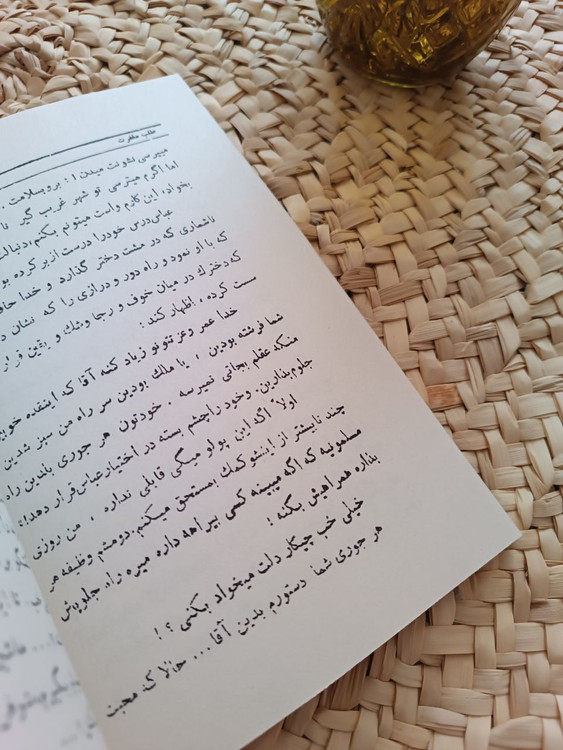 طلب مغفرت
میپرسی نشونت میدن ! : بروبسلامت .
اما اگرم میترسی تو شهر غریب گیر
بخواد، این کارم واست میتونم بکنم، دنبالت
عباس درس خود را درست از بر کرده بو
ناشماری که در مشت دختر گذارد و خدا حاف
که با او نمود و راه دور و درازی را که نشان د
که دخترك در میان خوف و رجا وشك و یقین قرار
سست کرده ، اظهار کند :
خدا عمر وعزتتونو زیاد کنه آقا که اینقده خوبین
شما فرشته بودین ، یا ملك بودین سر راه من سبز شدین
منکه عقلم بجائی نمیرسه . خودتون هر جوری باندین راه
جلوم بذارین. وخود را چشم بسته در اختیار عباس قرار دهد!:
اولا اگه این پولو میگی قابلی نداره ، من روزی
چند تا بیشتر از اینشو کمك بمستحق میکنم. دومشم وظیفه هر
مسلمونیه که اگه میبینه کسی بیراهه داره میره راه جلو پاش
بذاره همراهیش بکنه !
خیلی خب چیکار دلت میخواد بکنی ؟ !
هر جوری شما دستورم بدین آقا ... حالا که محبت